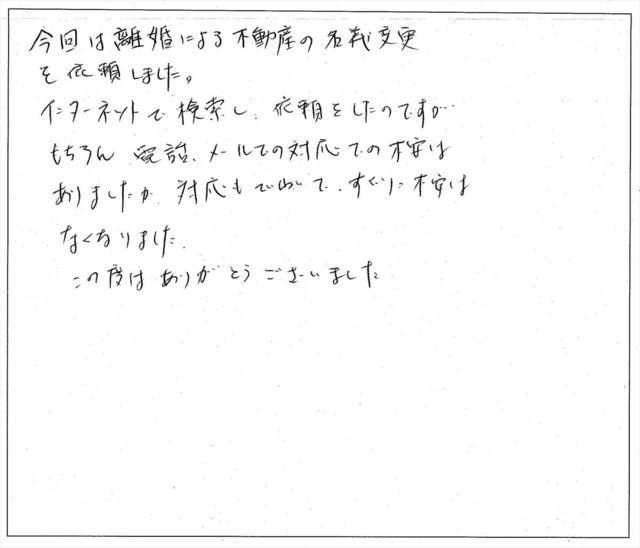 今回は離婚による不動産の名義変更
を依頼しました。
インターネットで検索し、依頼をしたのですが
もちろん 電話、メールでの対応での不安は
ありましたが、対応もていねいで、すぐに不安は
なくなりました。
この度はありがとうございました